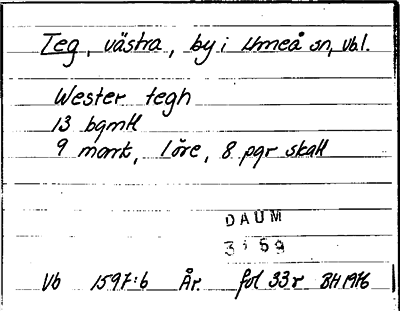 Teg, västra, by i Umeå sn, Vb l.
Wester tegh
13 bgmtl
9 mark, 1 öre, 8 pgr skatt
DAUM
3159
Vb 1597:6 År. fol 33 r BH 1976